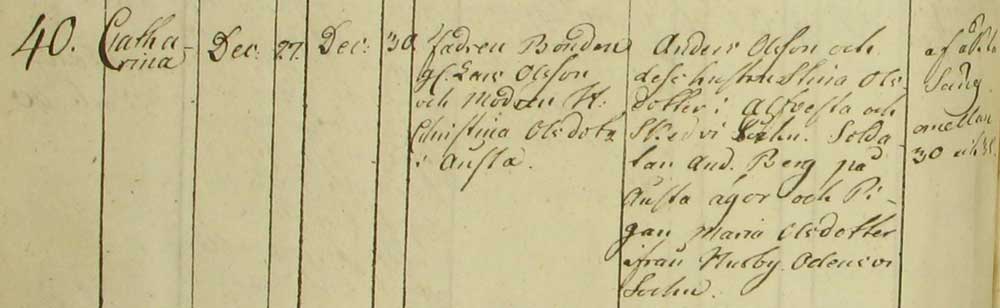 40. Catha-
rina
Dec: 27.
Dec: 30.
Fadren Bonden
gl. Lars Olsson
och Modren H:
Christina Olsdotr
i Austa.
Anders Olsson och
dess hustru Stina Ols-
dotter i Alfvesta och
Skedvi Sockn. Solda-
tan And. Berg på
Austa ägor och Pi-
gan Maria Olsdotter
ifrån Husby Odensvi
Sockn.
af
Säng
mellan
30 och 35.